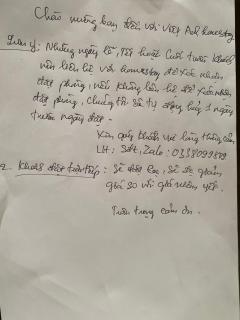 Chào mừng bạn đến với Việt Ad homestay
Lưu ý: Những ngày lễ, Tết hoặc cuối tuần khách
nên liên hệ với homestay để xác nhận
đặt phòng, nếu không liên hệ để xác nhận
đặt phòng, chúng tôi sẽ tự động hủy 1 ngày
trước ngày đặt.
Xin quý khách vui lòng thông cảm.
LH: Sdt, Zalo: 0338099889
2. Khách đặt trực tiếp: Sẽ được giảm
giá so với giá niêm yết.
Trân trọng cảm ơn.